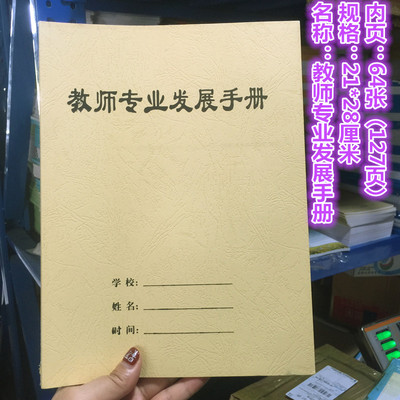 教师专业发展手册
学校:
姓名:
时间:
名称：教师专业发展手册
规格：21*28厘米
内页：64张（127页）